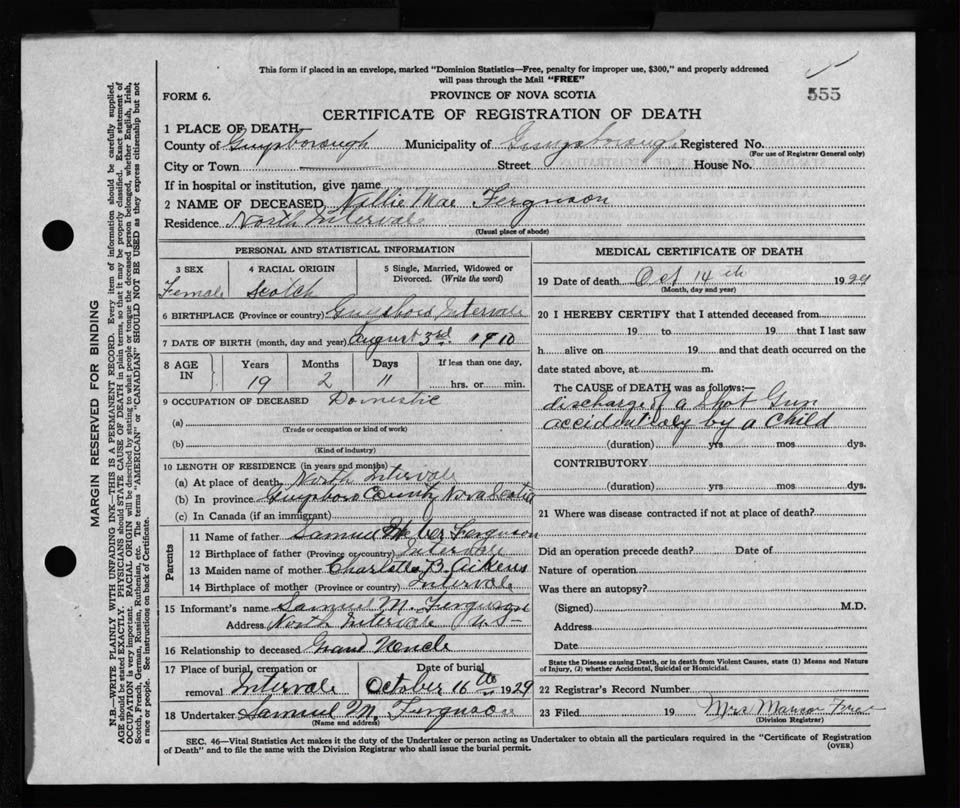 This form if placed in an envelope, marked "Dominion Statistics—Free, penalty for improper use, $300," and properly addressed
will pass through the Mail "FREE"
FORM 6.
PROVINCE OF NOVA SCOTIA
555
CERTIFICATE OF REGISTRATION OF DEATH
1 PLACE OF DEATH—
County of Guysborough Municipality of Guysborough Registered No.
(For use of Registrar General only)
City or Town Street House No.
If in hospital or institution, give name
2 NAME OF DECEASED Nillie Mae Ferguson
Residence North Intervale
(Usual place of abode)
PERSONAL AND STATISTICAL INFORMATION
3 SEX
Female
4 RACIAL ORIGIN
Scotch
5 Single, Married, Widowed or
Divorced. (Write the word)
6 BIRTHPLACE (Province or country) Intervale
7 DATE OF BIRTH (month, day and year) August 3rd 1910
8 AGE
IN
Years
19
Months
2
Days
11
If less than one day,
hrs. or min.
9 OCCUPATION OF DECEASED Domestic
(a)
(Trade or occupation or kind of work)
(b)
(Kind of industry)
10 LENGTH OF RESIDENCE (in years and months)
(a) At place of death North Intervale
(b) In province Guysboro County Nova Scotia
(c) In Canada (if an immigrant)
Parents
11 Name of father Samuel Ferguson
12 Birthplace of father (Province or country) Intervale
13 Maiden name of mother Charlotte B. Aikens
14 Birthplace of mother (Province or country) Intervale
15 Informant's name Samuel M. Ferguson
Address North Intervale NS
16 Relationship to deceased Grand Uncle
17 Place of burial, cremation or
removal Intervale
Date of burial
October 16th 1929
18 Undertaker Samuel M. Ferguson
(Name and address)
MEDICAL CERTIFICATE OF DEATH
19 Date of death Oct 14th 1929
(Month, day and year)
20 I HEREBY CERTIFY that I attended deceased from
19 to 19 that I last saw
h alive on 19 and that death occurred on the
date stated above, at m.
The CAUSE of DEATH was as follows:—
discharge of a Shot Gun
accidentioly by a child
(duration) yrs mos dys.
CONTRIBUTORY
(duration) yrs mos dys.
21 Where was disease contracted if not at place of death?
Did an operation precede death? Date of
Nature of operation
Was there an autopsy?
(Signed) M.D.
Address
Date
State the Disease causing Death, or in death from Violent Causes, state (1) Means and Nature
of Injury, (2) whether Accidental, Suicidal or Homicidal.
22 Registrar's Record Number
23 Filed 19 Mrs
(Division Registrar)
SEC. 46—Vital Statistics Act makes it the duty of the Undertaker or person acting as Undertaker to obtain all the particulars required in the "Certificate of Registration
of Death" and to file the same with the Division Registrar who shall issue the burial permit.
(OVER)
MARGIN RESERVED FOR BINDING
N.B.—WRITE PLAINLY WITH UNFADING INK—THIS IS A PERMANENT RECORD. Every item of information should be carefully supplied.
AGE should be stated EXACTLY. PHYSICIANS should STATE CAUSE OF DEATH in plain terms, so that it may be properly classified. Exact statement of
OCCUPATION is very important. RACIAL ORIGIN will be described by stating to what people or tongue the deceased person belonged, whether English, Irish,
Scotch, French, German, Russian, Ruthenian, etc. The terms "AMERICAN" or "CANADIAN" SHOULD NOT BE USED as they express citizenship but not
a race or people. See instructions on back of Certificate.